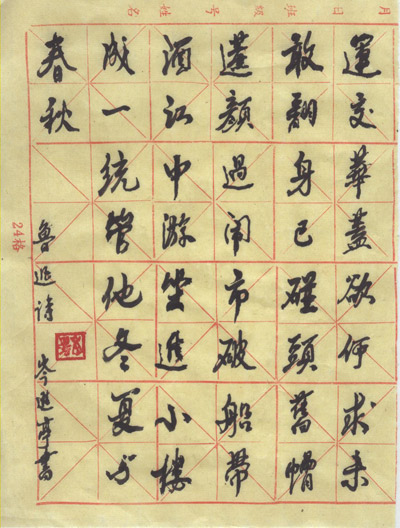 月 日 班级 号 姓名
運交華蓋欲何求未
敢翻身已碰頭舊帽
遮顏過闹市破船帶
酒江中游坐進小樓
成一統管他冬夏与
春秋
魯迅詩
岑亭書
24格